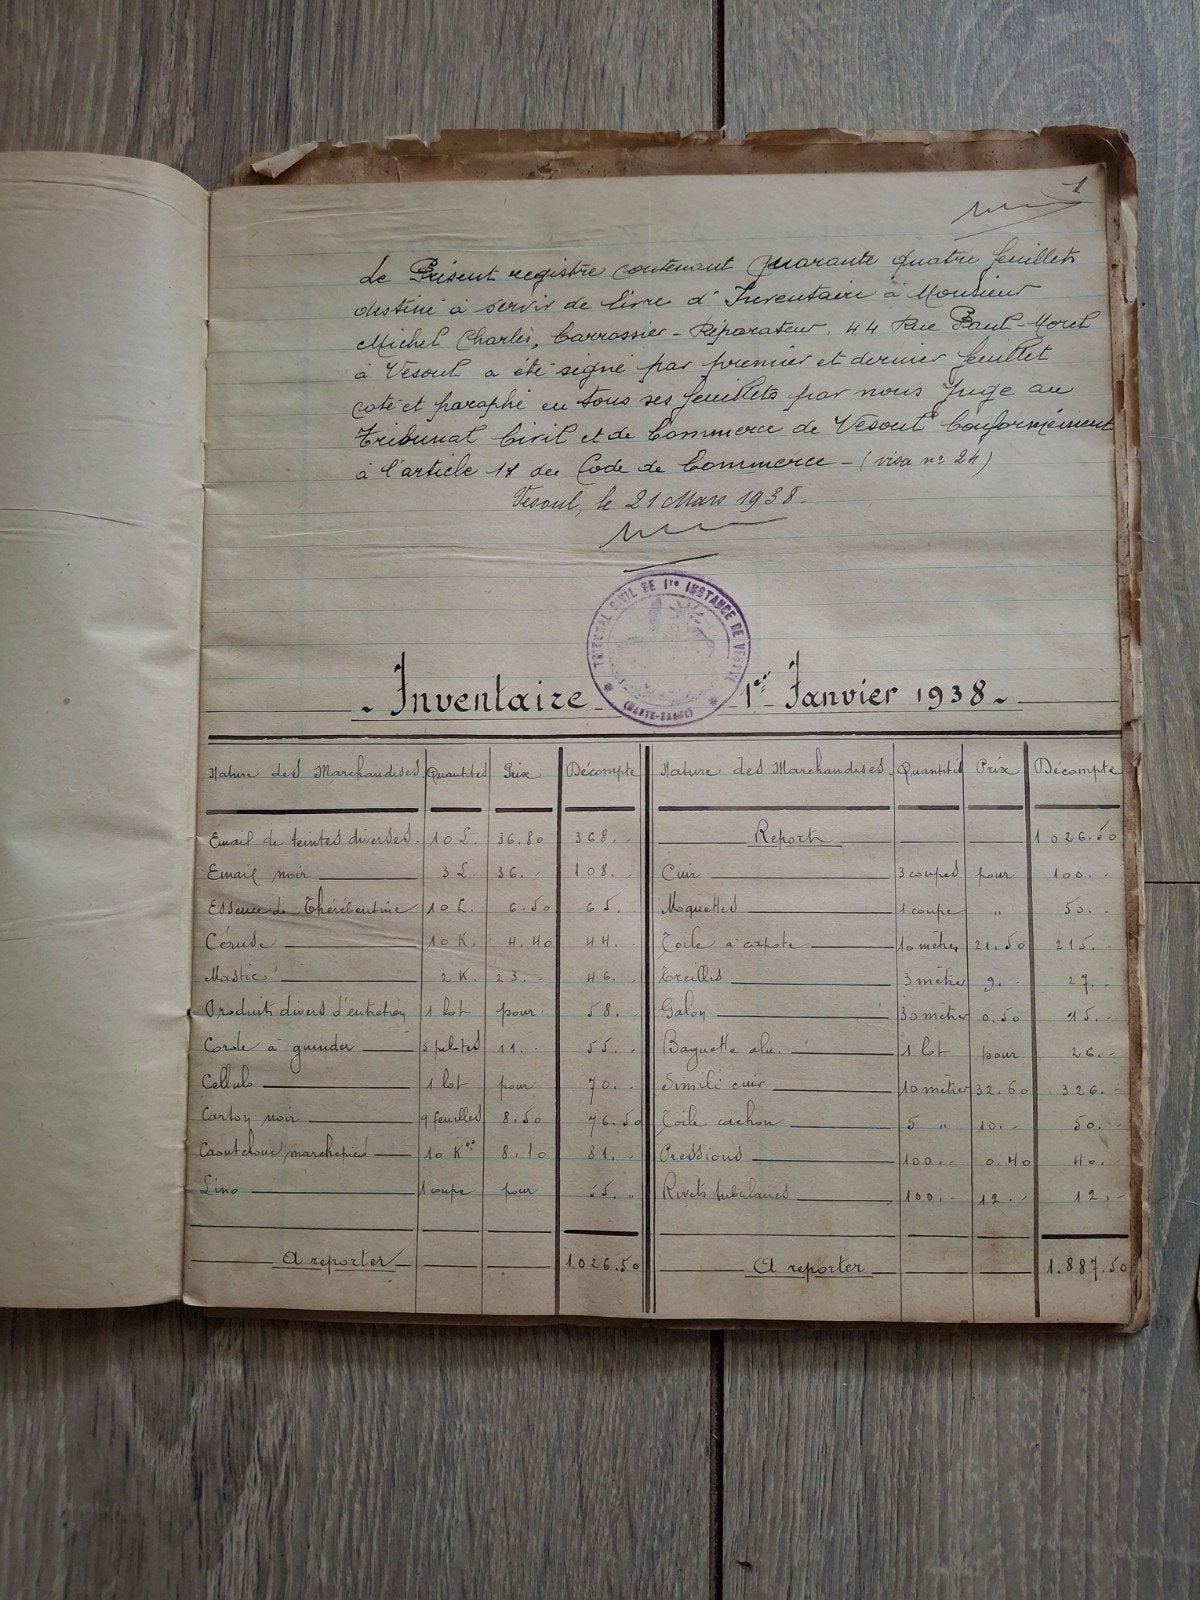 1
Le Présent registre contenant quarante quatre feuillets
destiné à servir de livre d'Inventaire à Monsieur
Michel Charles, Carrossier-Réparateur, 44 Rue Paul-Morel
à Vesoul a été signé par premier et dernier feuillet
coté et paraphé en tous ses feuillets par nous Juge au
Tribunal Civil et de Commerce de Vesoul Conformément
à l'article 11 du Code de Commerce - (visa n° 24)
Vesoul, le 21 Mars 1938.
TRIBUNAL CIVIL DE 1re INSTANCE DE VESOUL
(HAUTE-SAONE)
- Inventaire 1er Janvier 1938 -
Nature des Marchandises Quantités Prix Décompte
Email de teintes diverses 10 L. 36.80 368.-
Email noir 3 L. 36.- 108.-
Essence de Thérébentine 10 L. 6.50 65.-
Céruse 10 K. 4.40 44.-
Mastic 2 K. 23.- 46.-
Produits divers d'entretien 1 lot pour 58.-
Corde à guinder 5 pelotes 11.- 55.-
Cellulo 1 lot pour 70.-
Carton noir 9 feuilles 8.50 76.50
Caoutchouc marchepied 10 Kos 8.10 81.-
Lino 1 coupe pour 55.-
A reporter 1.026.50
Nature des Marchandises Quantités Prix Décompte
Report 1026.50
Cuir 3 coupes pour 100.-
Moquettes 1 coupe " 50.-
Toile à capote 10 mètres 21.50 215.-
Treillis 3 mètres 9.- 27.-
Galon 30 mètres 0.50 15.-
Baguette alu. 1 lot pour 26.-
Simili cuir 10 mètres 32.60 326.-
Toile cachou 5 " 10.- 50.-
Pressions 100.- 0.40 40.-
Rivets tubulaires 100.- 12.- 12.-
A reporter 1.887.50